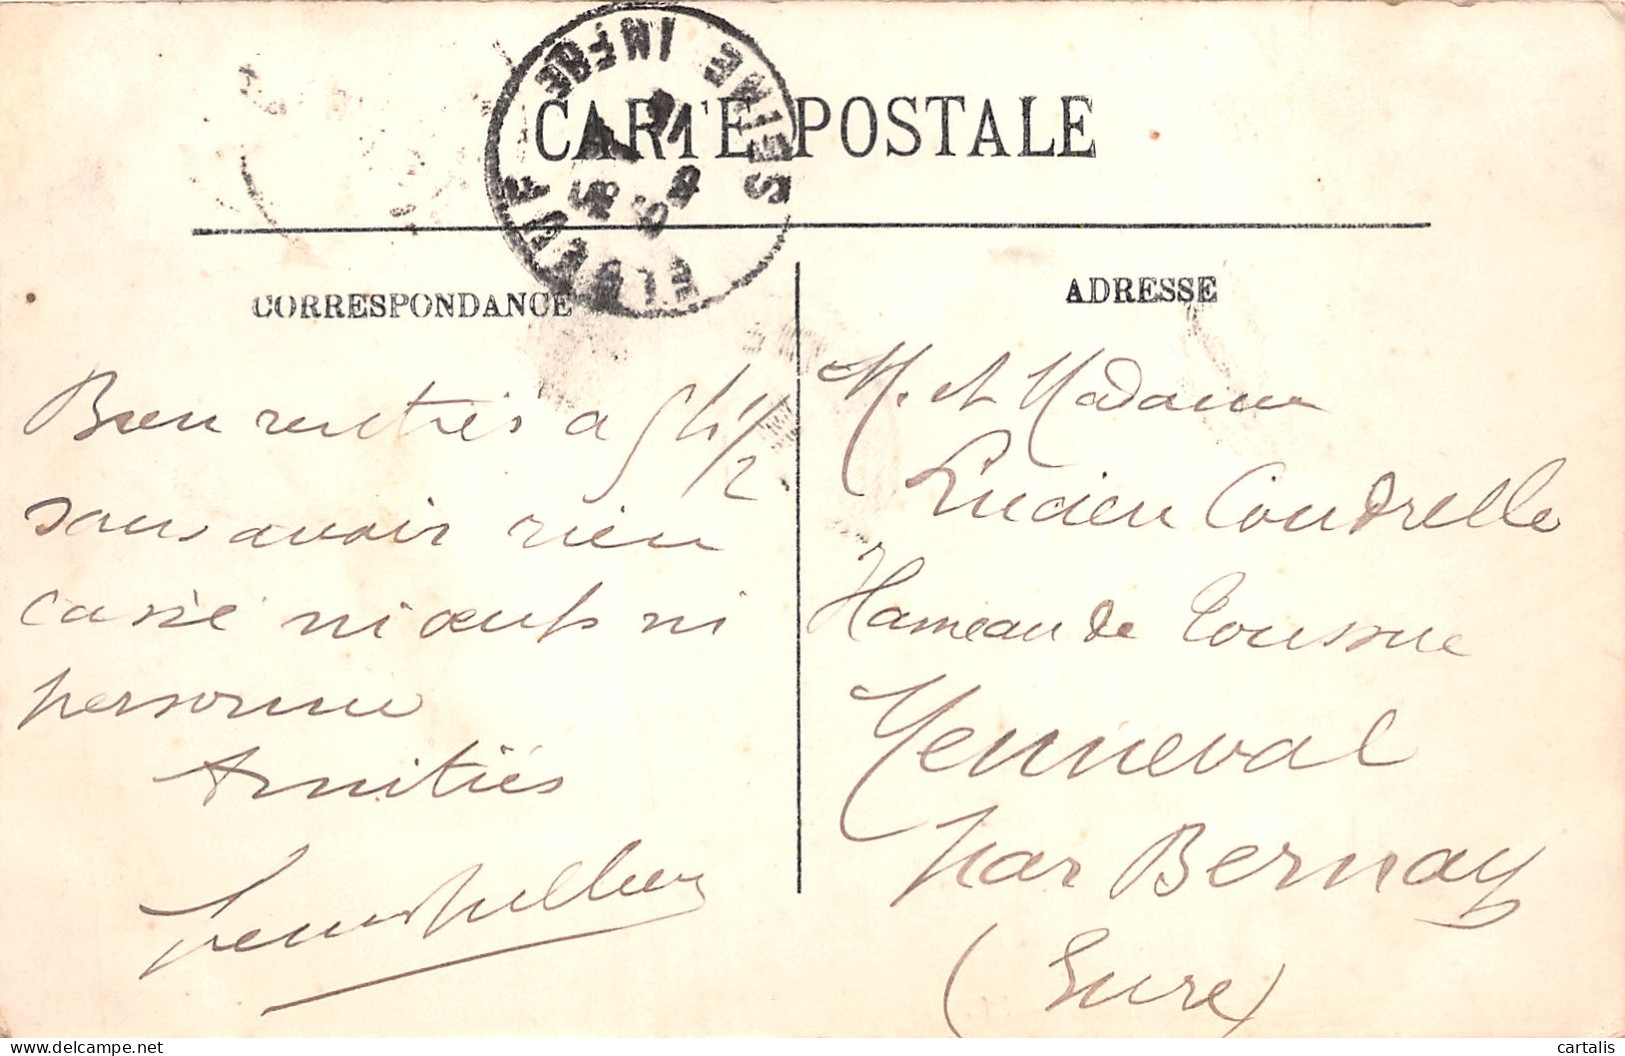 CARTE POSTALE
ELBEUF SEINE INFRE
CORRESPONDANCE
Bien rentrés a 5 h 1/2
sans avoir rien
cassé ni œufs ni
personne
Amitiés
ADRESSE
M. et Madame
Lucien Coudrelle
Hameau de Toussue
Menneval
par Bernay
(Eure)
cartalis